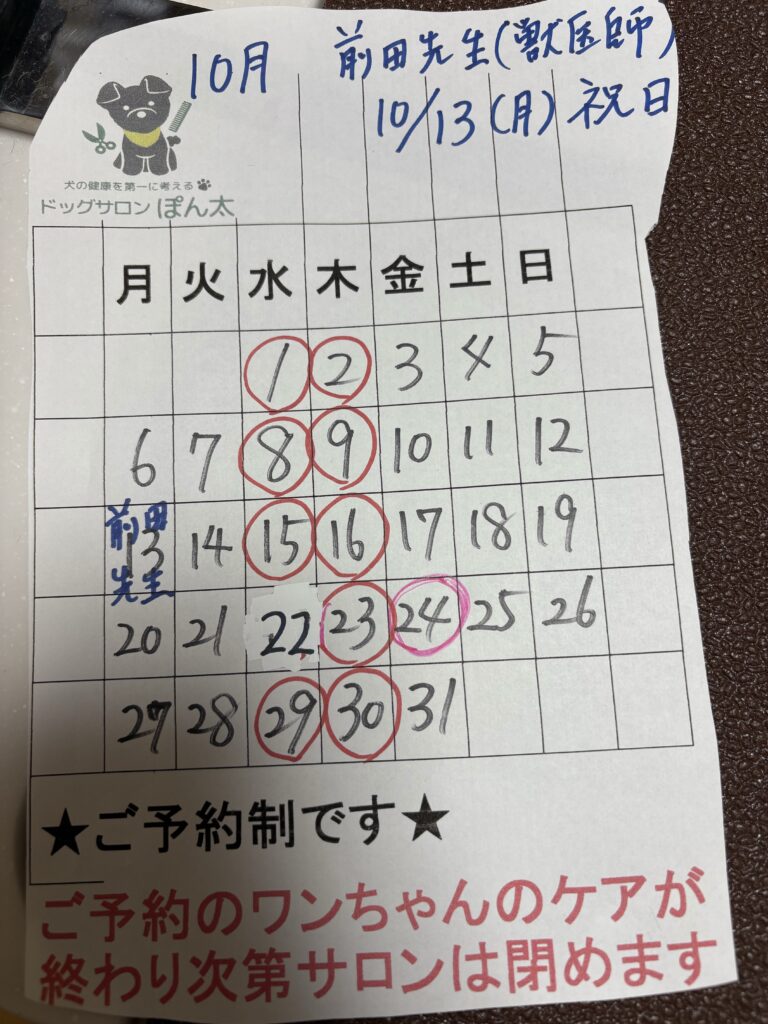 10月 前田先生(獣医師)
10/13(月)祝日
犬の健康を第一に考える
ドッグサロン ぽん太
月 火 水 木 金 土 日
1 2 3 4 5
6 7 8 9 10 11 12
前田
13 14 15 16 17 18 19
先生
20 21 22 23 24 25 26
27 28 29 30 31
★ご予約制です★
ご予約のワンちゃんのケアが
終わり次第サロンは閉めます